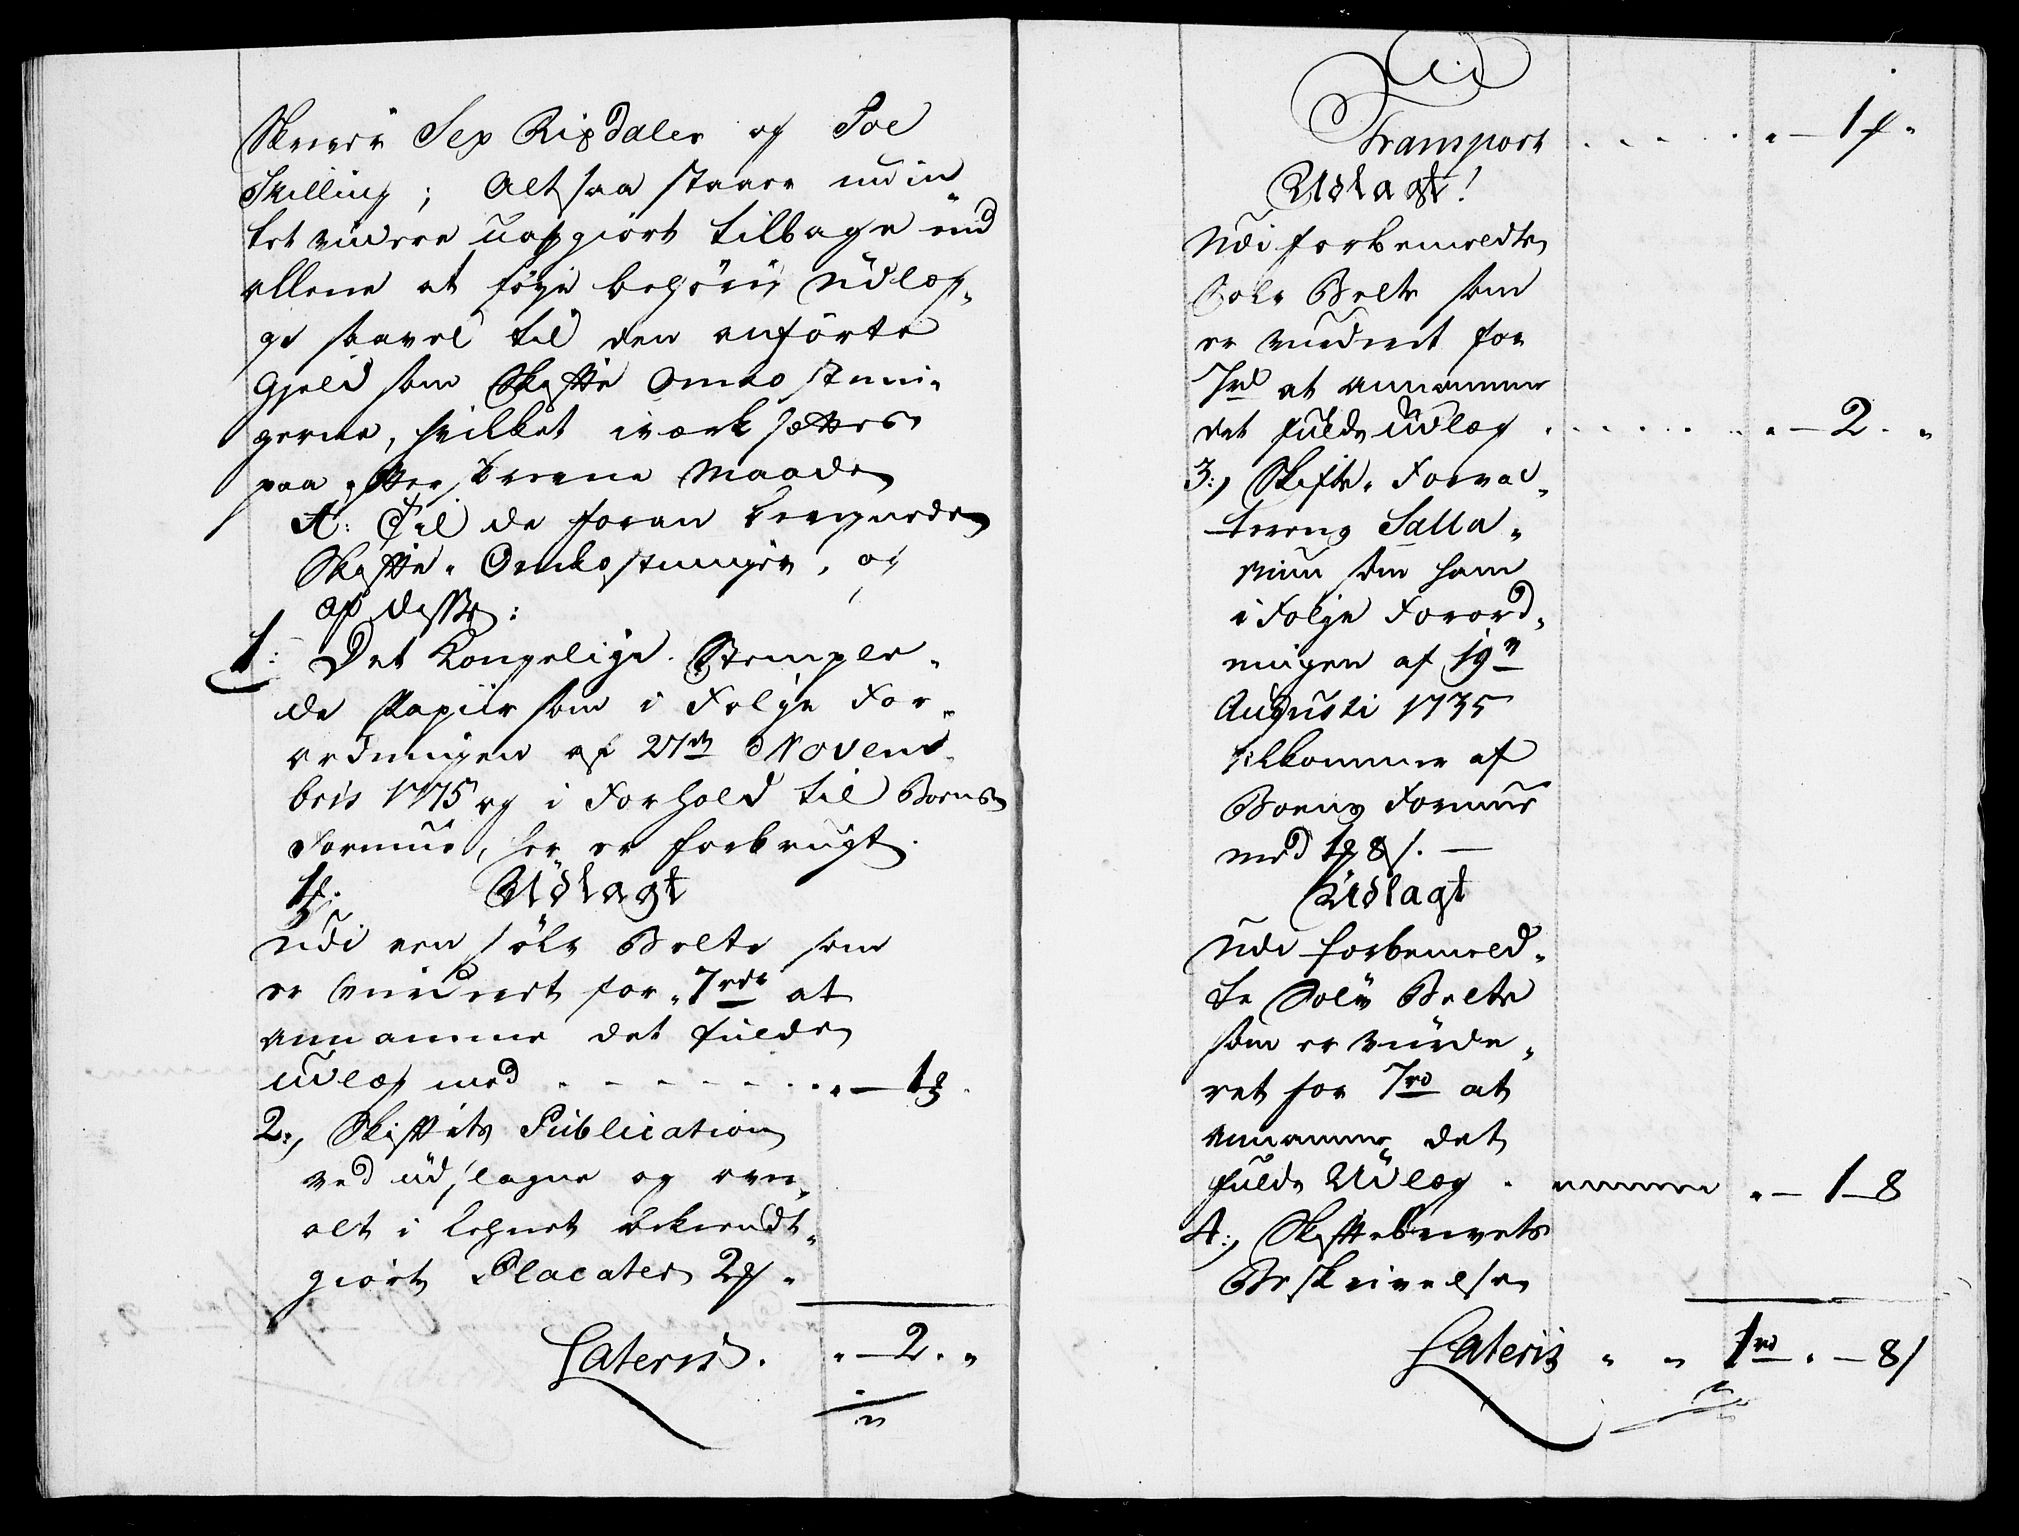 Sex Rigsdaler og Toe
Skilling; Altsaa staar nu in„
tet videre uafgiort tilbage end
allene at föye behörig Udlæg„
ge saavel til den anförte
Gjeld som Skifte Omkostnin„
gerne, hvilket iværksættes
paa efterskrevne Maade
A: Til de foran beregnede
Skifte„ Omkostninger, og
af disse:
1: Det Kongelige Stemple„
de Papiir som i Folge For„
ordningen af 27de Novem„
bris 1775 og i Forhold til Boens
Formue, her er forbrugt
1 Udlagt
Udi een sölv Belte som
er vurderet for 7rdr at
annamme det fulde
Udlæg med . . . . . „—1
2., Skiftets Publication
ved udslagne og over„
alt i Lehnet bekiendt„
giorte Placater 2
Lateris. „—2. „
Transport . . . . „—1
Udlagt!
Udi forbemeldte
Solv Belte som
er vurderet for
7rd at annamme
det fulde Udlæg . . . . . „—2. „
3., Skifte„ Forval„
terens Salla„
rium som ham
i Folge Forord„
ningen af 19n
Augusti 1735
tilkommer af
Boens Formue
med 1 8
Udlagt
Udi forbemeld„
te Solv Belte
som er vurde„
ret for 7rd at
annamme det
fulde Udlæg . „—1—8
4., Skiftebrevets
Beskrivelse
Lateris „ „ 1rd. —8